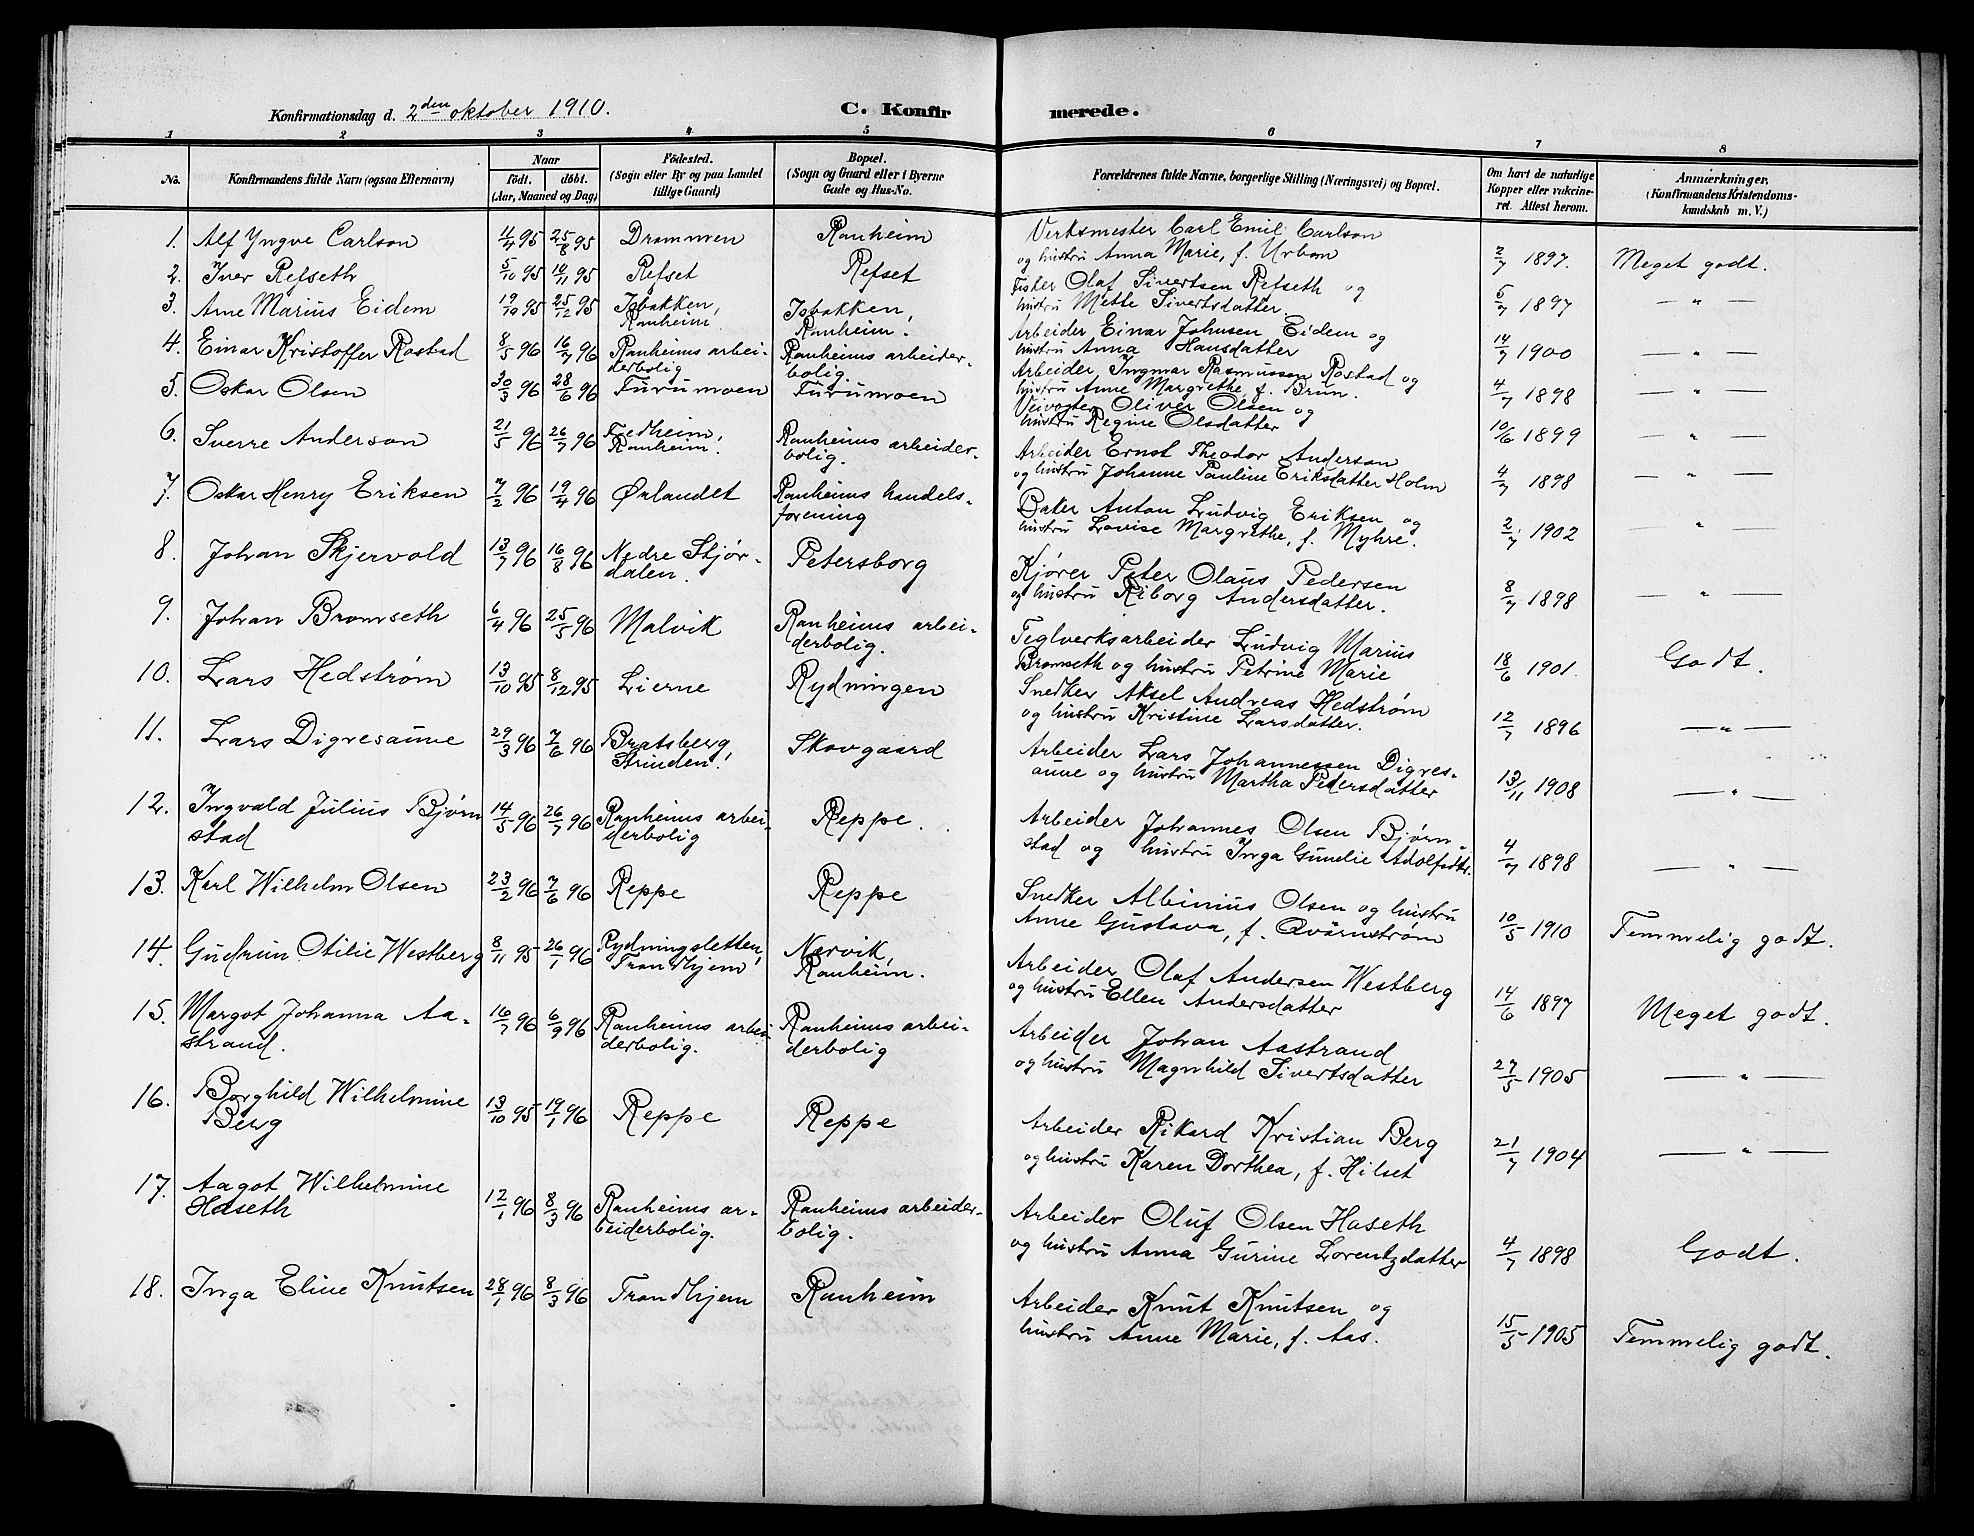 Konfirmationsdag d. 2den oktober 1910. C. Konfirmerede.
1 2 3 4 5 6 7 8
No. Konfirmandens fulde Navn (ogsaa Efternavn) Naar födt. döbt. (Aar, Maaned og Dag) Födested. (Sogn eller By og paa Landet tillige Gaard) Bopæl. (Sogn og Gaard eller i Byerne Gade og Hus-No. Forældrenes fulde Navne, borgerlige Stilling (Næringsvei) og Bopæl. Om havt de naturlige Kopper eller vakcineret. Attest herom. Anmærkninger, (Konfirmandens Kristendomskundskab m. V.)
1. Alf Yngve Carlson 11/4 95 25/8 95 Drammen Ranheim Verksmester Carl Emil Carlson
og hustru Anna Marie, f. Urban 2/7 1897. Meget godt.
2. Iver Refseth 5/10 95 10/11 95 Refset Refset Fisker Olaf Sivertsen Refseth og
hustru Mette Sivertsdatter. 5/7 1897 — " —
3. Arne Marius Eidem 19/10 95 25/12 95 Jobakken, Ranheim. Jobakken, Ranheim. Arbeider Einar Johnsen Eidem og
hustru Anna Hansdatter 14/7 1900 — " —
4. Einar Kristoffer Rostad 8/5 96 16/7 96 Ranheims arbeiderbolig Ranheims arbeiderbolig. Arbeider Ingmar Rasmussen Rostad og
hustru Anne Margrethe, f. Brun. 4/7 1898 — " —
5. Oskar Olsen 30/3 96 28/6 96 Furumoen Furumoen Veivogter Oliver Olsen og
hustru Regine Olsdatter 10/6 1899 — " —
6. Sverre Anderson 21/5 96 26/7 96 Fredheim, Ranheim. Ranheims arbeiderbolig. Arbeider Ernst Theodor Anderson
og hustru Johanne Pauline Eriksdatter Holm 4/7 1898 — " —
7. Oskar Henry Eriksen 7/2 96 19/4 96 Ørlandet Ranheims handelsforening Bager Anton Ludvig Eriksen og
hustru Lovise Margrethe, f. Myhre. 2/7 1902 — " —
8. Johan Skjervold 13/7 96 16/8 96 Nedre Stjørdalen. Petersborg Kjører Peter Olaus Pedersen
og hustru Riborg Andersdatter. 8/7 1898 — " —
9. Johan Bromseth 6/4 96 25/5 96 Malvik Ranheims arbeiderbolig. Teglverksarbeider Ludvig Marius
Bromseth og hustru Petrine Marie 18/6 1901. Godt.
10. Lars Hedstrøm 13/10 95 8/12 95 Lierne Rydningen Snedker Aksel Andreas Hedstrøm
og hustru Kristine Larsdatter. 12/7 1896 — " —
11. Lars Digresaune 29/3 96 7/6 96 Bratsberg, Strinden. Skovgaard Arbeider Lars Johannessen Digresaune
og hustru Martha Pedersdatter 13/11 1908 — " —
12. Ingvald Julius Bjørnstad 14/5 96 26/7 96 Ranheims arbeiderbolig Reppe. Arbeider Johannes Olsen Bjørnstad
og hustru Inga Gunelie Adolfsdtr. 4/7 1898 — " —
13. Karl Wilhelm Olsen 23/2 96 7/6 96 Reppe Reppe Snedker Albinius Olsen og hustru
Anne Gustava, f. Qvärnstrøm 10/5 1910 Temmelig godt.
14. Gudrun Otilie Westberg 8/11 95 26/1 96 Rydningsletten, Trondhjem Narvik, Ranheim. Arbeider Olaf Andersen Westberg
og hustru Ellen Andersdatter 14/6 1897 Meget godt.
15. Margot Johanna Aastrand. 16/7 96 6/9 96 Ranheims arbeiderbolig. Ranheims arbeiderbolig Arbeider Johan Aastrand
og hustru Magnhild Sivertsdatter 27/5 1905 — " —
16. Borghild Wilhelmine Berg 13/10 95 19/1 96 Reppe Reppe Arbeider Rikard Kristian Berg
og hustru Karen Dorthea, f. Hilset 21/7 1904 — " —
17. Aagot Wilhelmine Haseth 12/1 96 8/3 96 Ranheims arbeiderbolig. Ranheims arbeiderbolig. Arbeider Oluf Olsen Haseth
og hustru Anna Gurine Lorentzdatter 4/7 1898 Godt.
18. Inga Eline Knutsen 28/1 96 8/3 96 Trondhjem Ranheim Arbeider Knut Knutsen og
hustru Anne Marie, f. Aas. 15/5 1905 Temmelig godt.